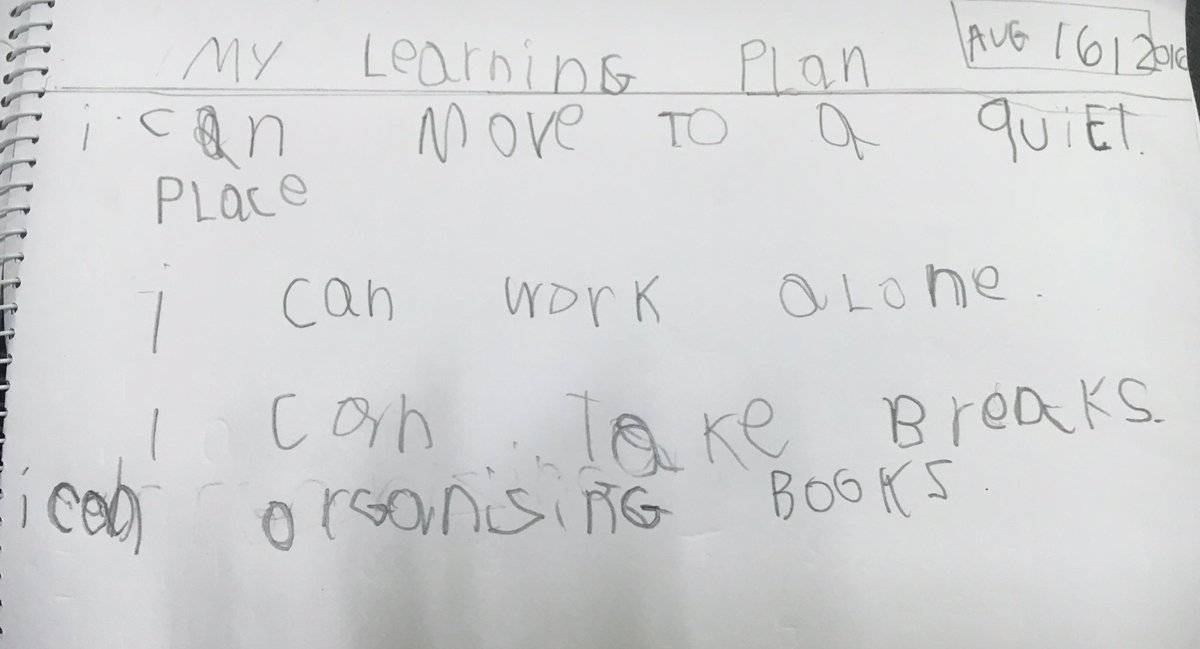 My Learning Plan AUG 16 | 2016
i can Move TO a QUiET.
PLace
i can work aLone.
I can Take BreaKS.
i can organsiNG BOOKS.